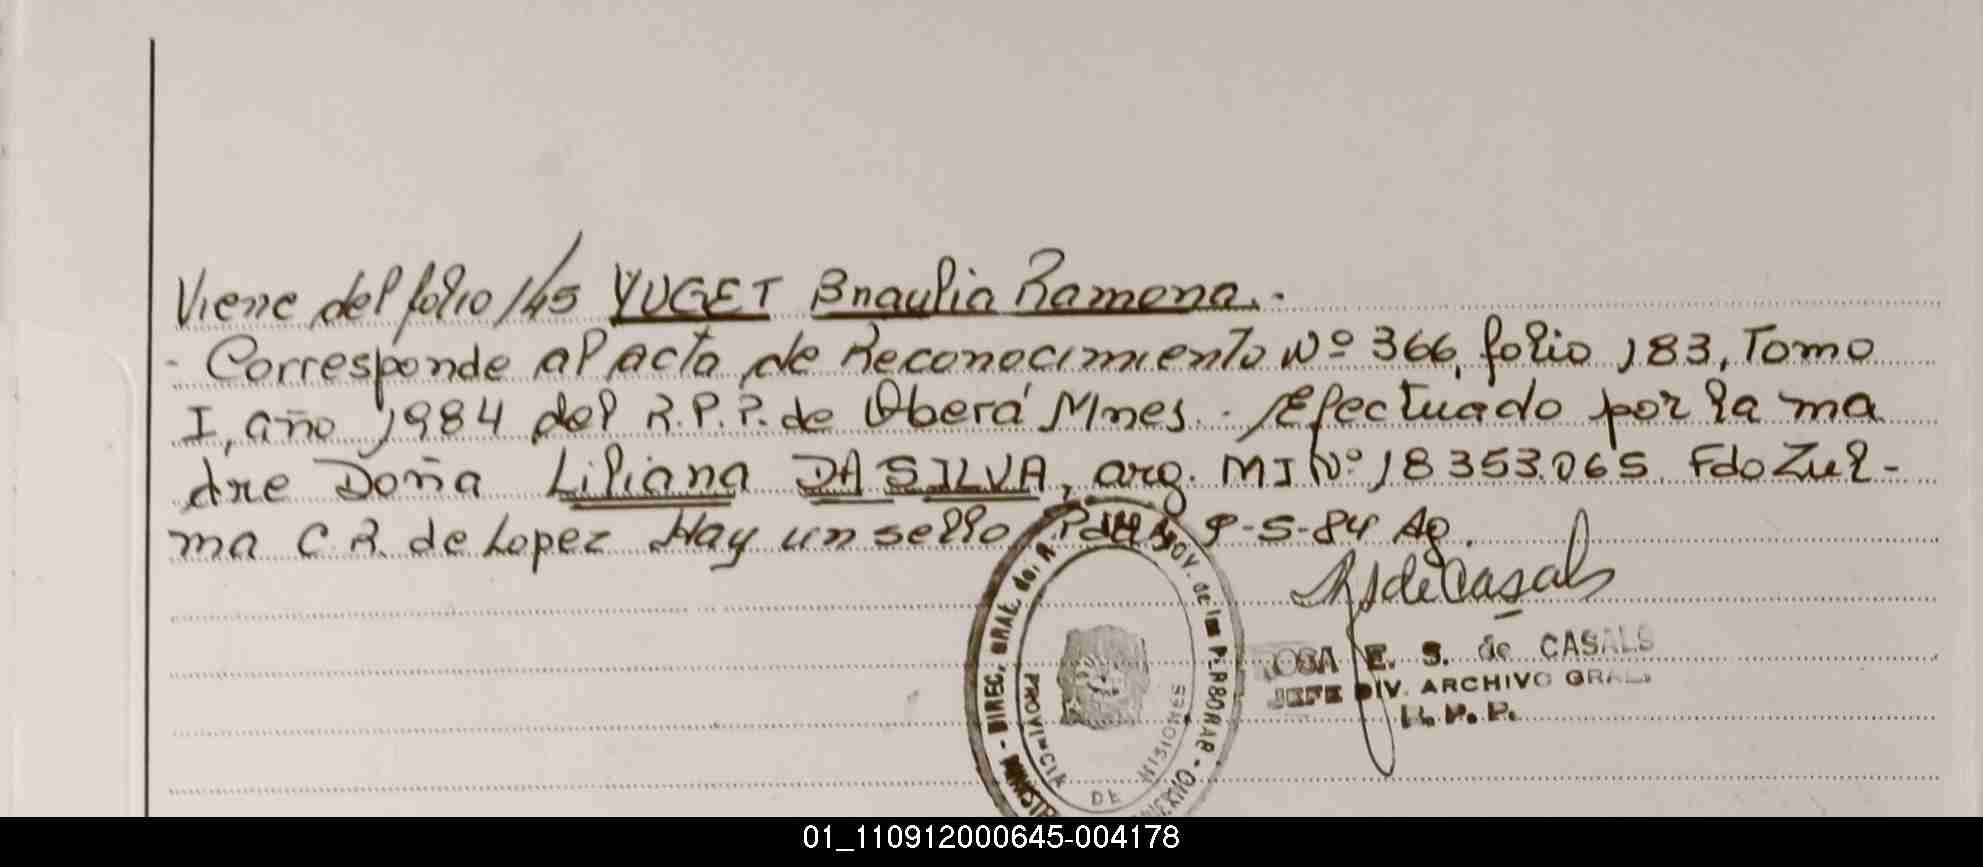 Viene del folio 145 YUGET Braulia Ramona.-
- Corresponde al acta de Reconocimiento Nº 366, folio 183, Tomo
I, año 1984 del R.P.P. de Oberá Mnes.- Efectuado por la ma
dre Doña Liliana DA SILVA, arg. MI Nº 18353.065. Fdo Zul-
ma C.R. de Lopez Hay un sello 9-5-84 Ag.
ROSA E. S. de CASALS
JEFE DIV. ARCHIVO GRAL.
R.P.P.
DIREC. GRAL. de
PROVINCIA DE MISIONES
01_110912000645-004178